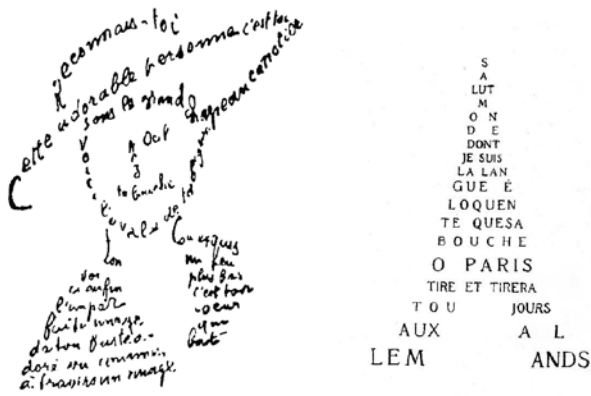 Reconnais-toi
Cette adorable personne c'est toi
sous le grand chapeau canotier
Oeil
Nez
ta bouche
Voici l'ovale de ta figure
ton
cou
un peu
plus bas
c'est ton
coeur
qui
bat
voi
ci enfin
l'impar
faite image
de ton buste a
doré vu comme
à travers un nuage
S
A
LUT
M
O N
D E
DONT
JE SUIS
LA LAN
GUE É
LOQUEN
TE QUESA
BOUCHE
O PARIS
TIRE ET TIRERA
TOU JOURS
AUX A L
LEM ANDS